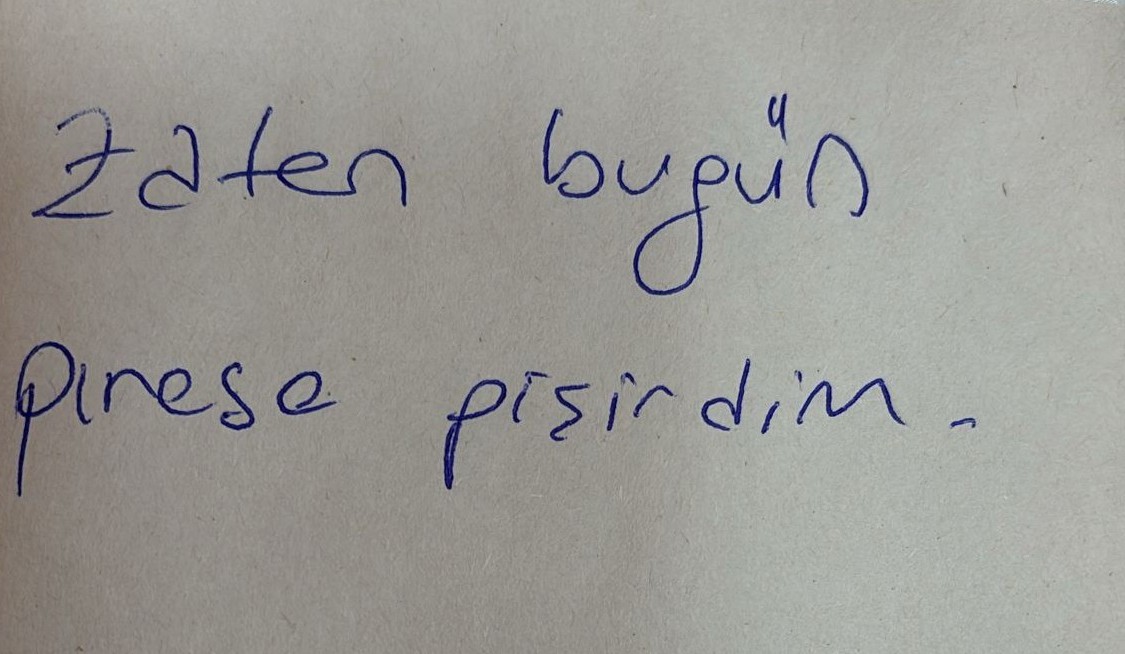 Zaten bugün
pırese pişirdim.